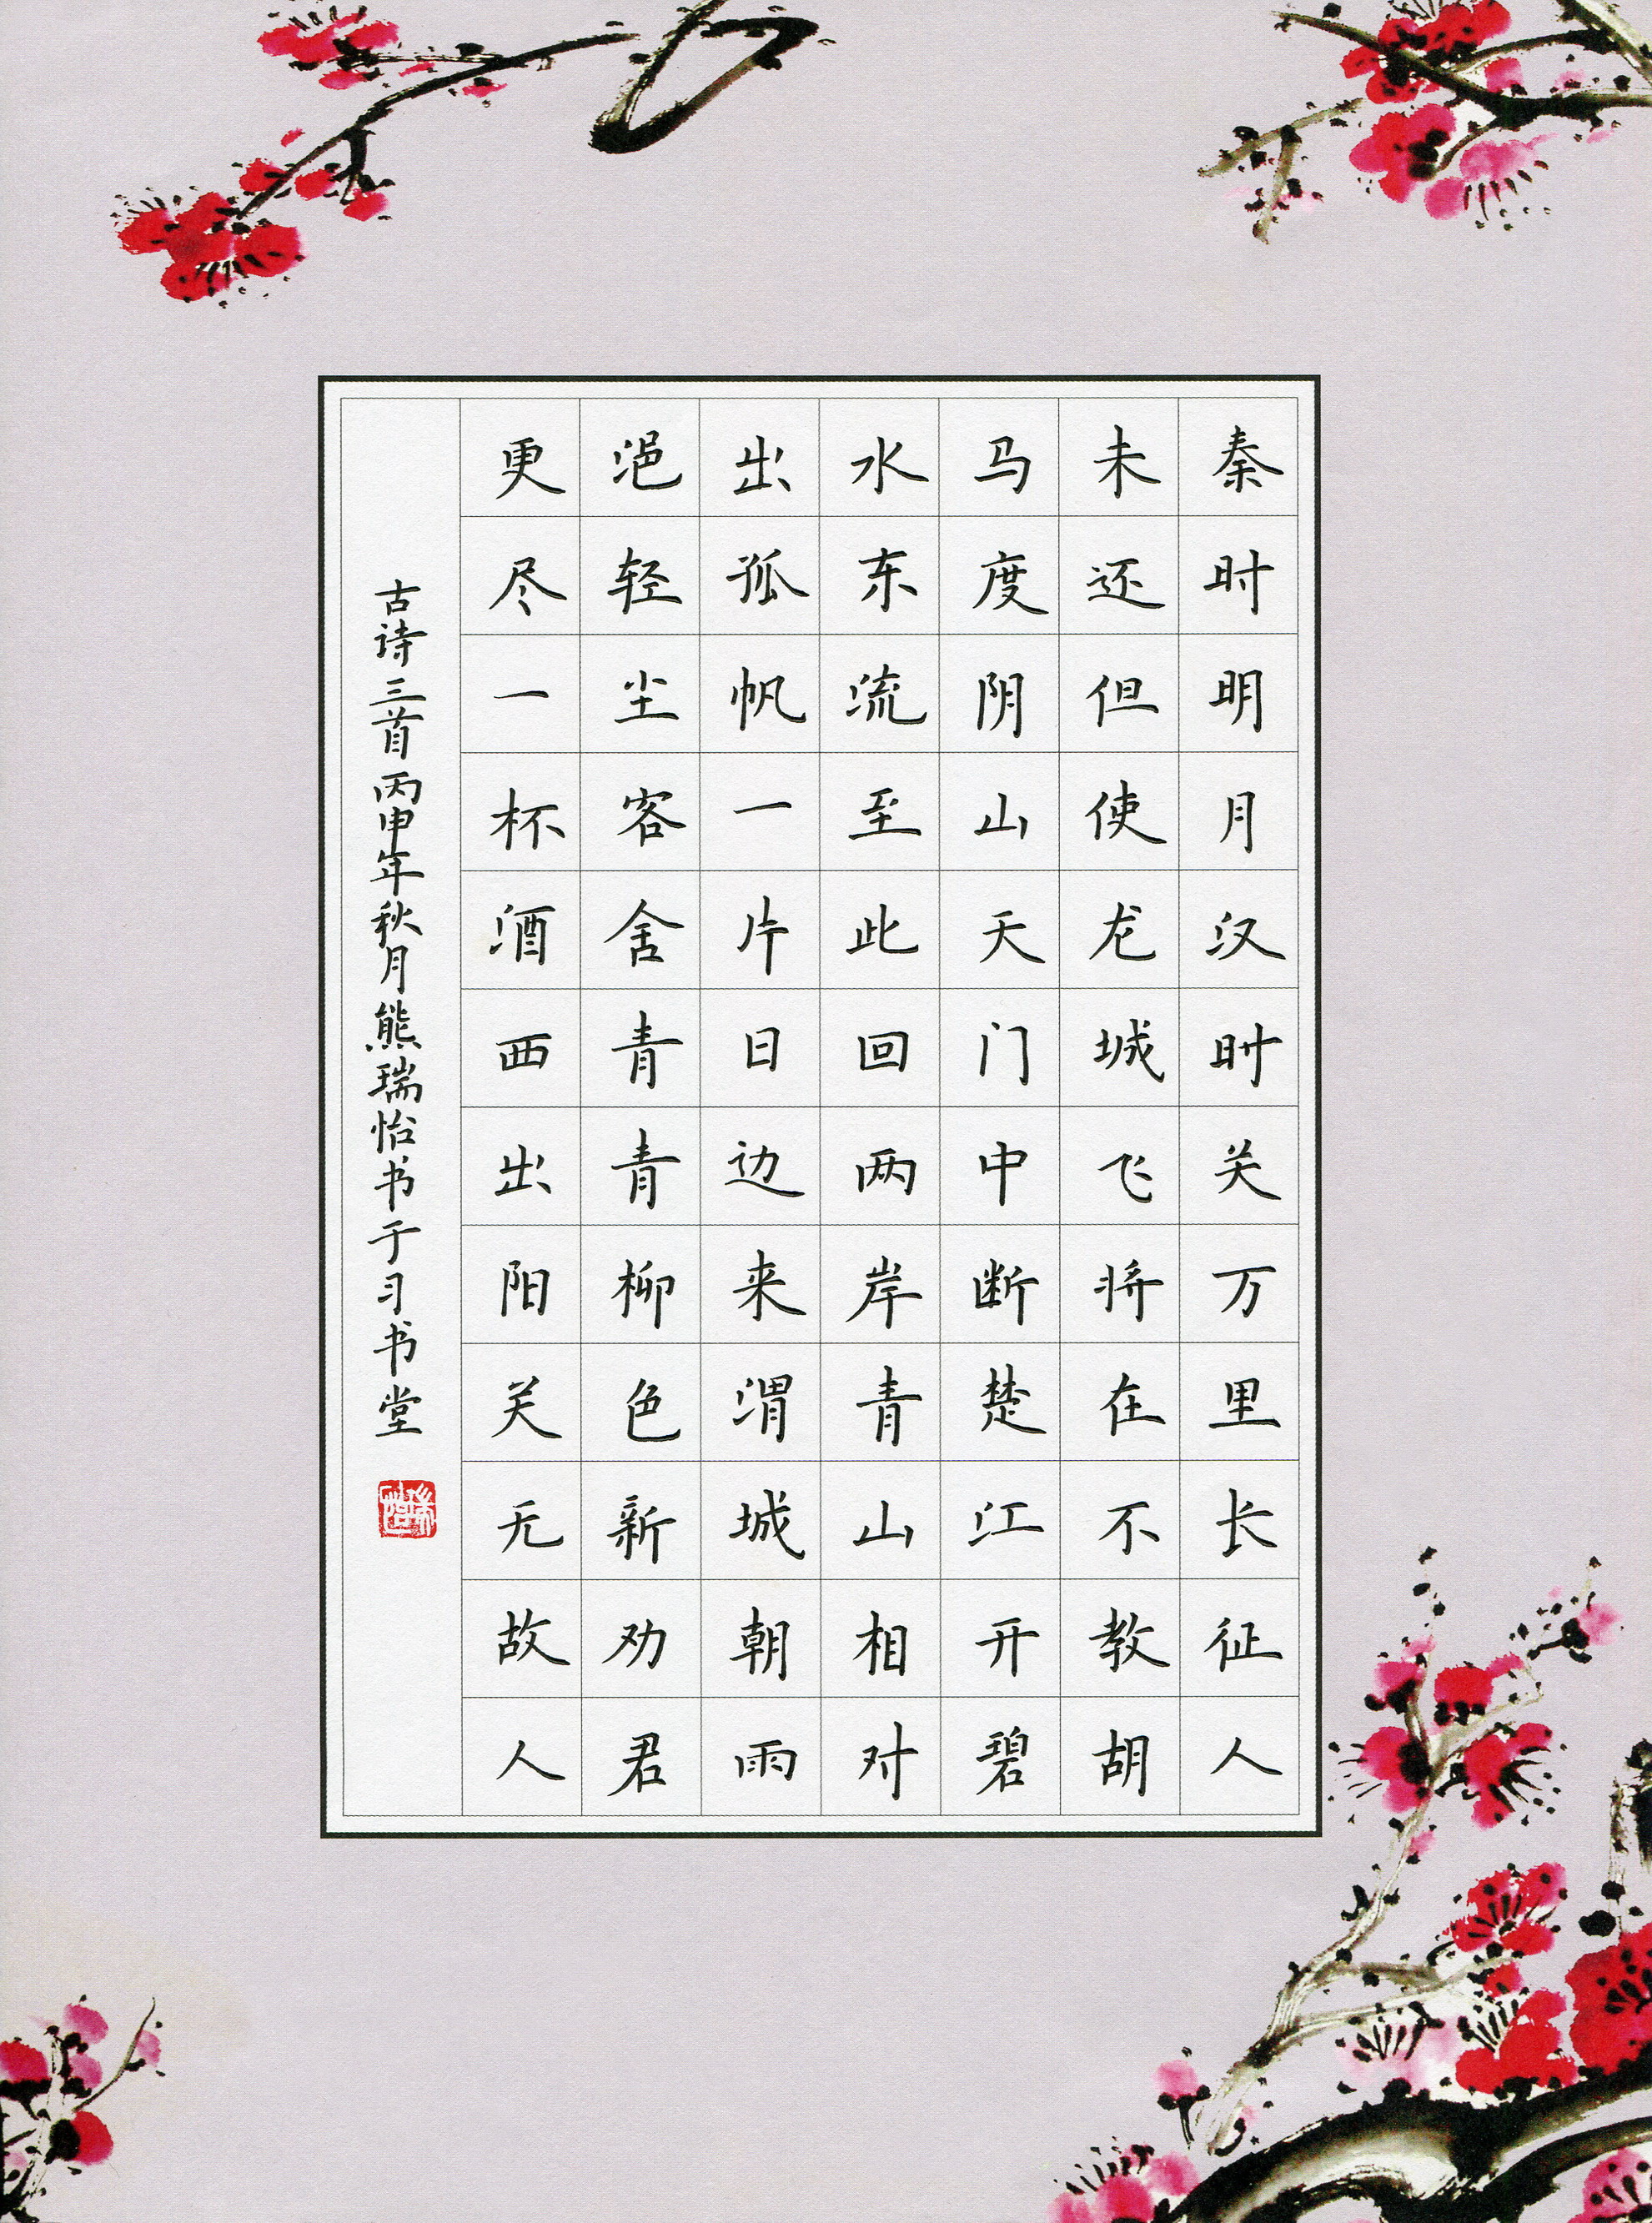 秦时明月汉时关万里长征人
未还但使龙城飞将在不教胡
马度阴山天门中断楚江开碧
水东流至此回两岸青山相对
出孤帆一片日边来渭城朝雨
浥轻尘客舍青青柳色新劝君
更尽一杯酒西出阳关无故人
古诗三首丙申年秋月熊瑞怡书于习书堂